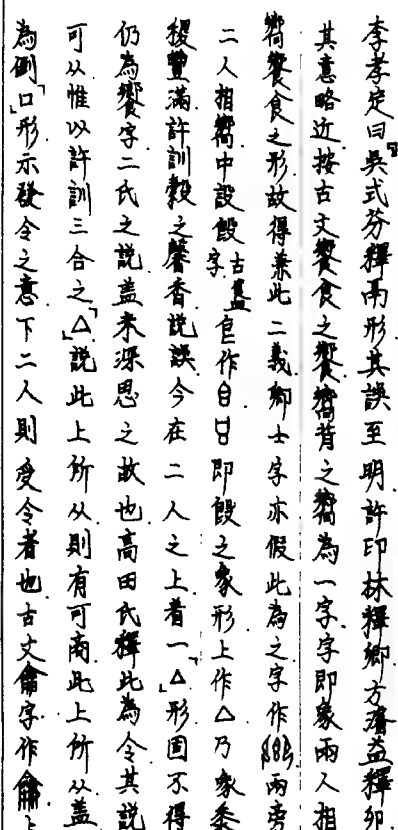 李孝定曰「吳式芬釋鬲形其誤至明許印林釋鄉方濬益釋卯
其意略近按古文饗食之饗嚮背之嚮為一字字即象兩人相
嚮饗食之形故得兼此二義鄉士字亦假此為之字作兩旁
二人相嚮中設𣪘古簋字皀作即𣪘之象形上作△乃象黍
稷豐滿許訓穀之馨香說誤今在二人之上着一「△」形固不得
仍為饗字二氏之說蓋未深思之故也高田氏釋此為令其說
可从惟以許訓三合之「△」說此上所从則有可商此上所从蓋
為倒「口」形示發令之意下二人則受令者也古文龠字作上